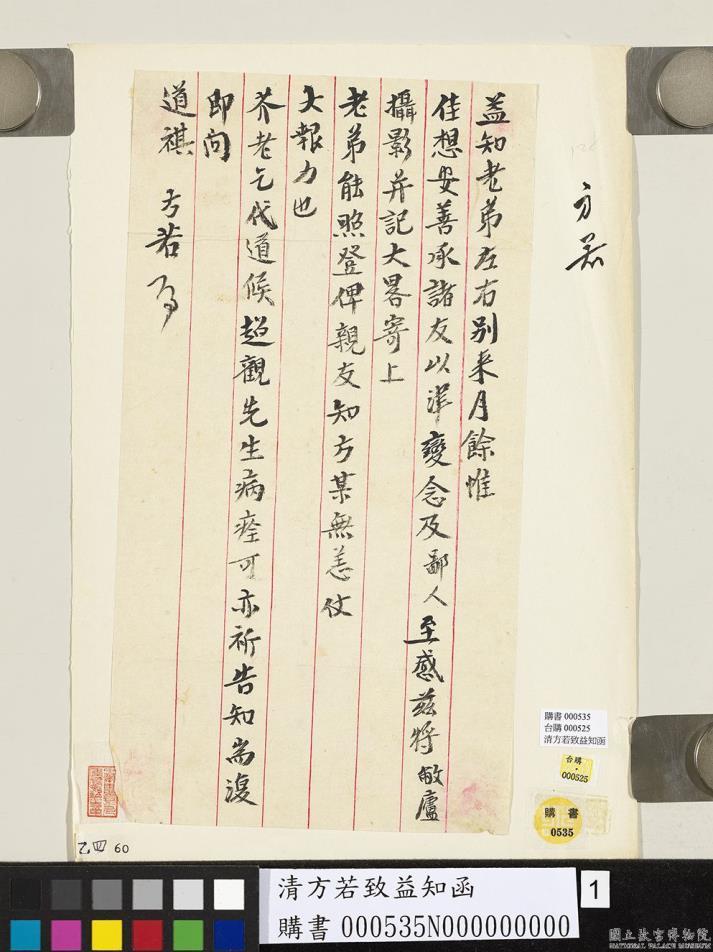 方若
益知老弟左右別来月餘惟
佳想安善承諸友以津變念及鄙人至感茲將敝廬
攝影并記大畧寄上
老弟能照登俾親友知方某無恙仗
大報力也
芥老乞代道候超觀先生病痊可亦祈告知耑復
即问
道祺 方若
購書 000535
台購 000525
清方若致益知函
台購
000525
購書
0535
乙四 60
清方若致益知函
購書 000535N000000000
1
國立故宮博物院
NATIONAL PALACE MUSEUM